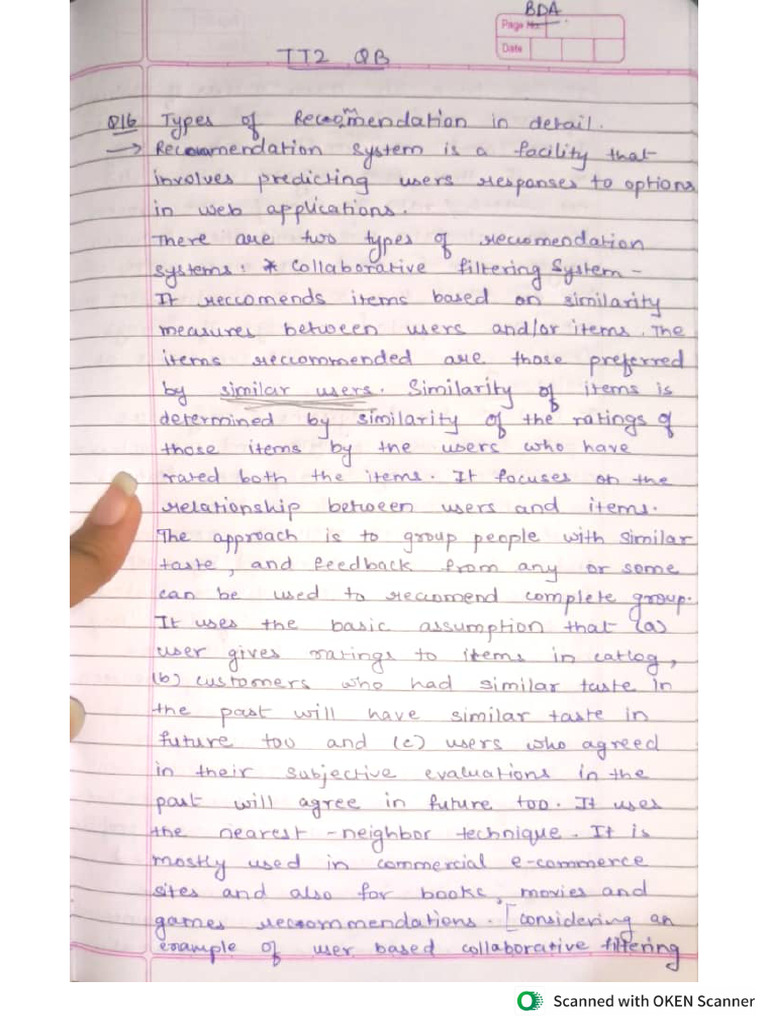 BDA
Page No.
Date
TT2 QB
Q16 Types of Recommendation in detail.
→ Recommendation system is a facility that
involves predicting users responses to options
in web applications.
There are two types of reccomendation
systems: * Collaborative filtering System -
It reccomends items based on similarity
measures between users and/or items. The
items reccommended are those preferred
by similar users. Similarity of items is
determined by similarity of the ratings of
those items by the users who have
rated both the items. It focuses on the
relationship between users and items.
The approach is to group people with similar
taste, and feedback from any or some
can be used to reccomend complete group.
It uses the basic assumption that (a)
user gives ratings to items in catlog,
(b) customers who had similar taste in
the past will have similar taste in
future too and (c) users who agreed
in their subjective evaluations in the
past will agree in future too. It uses
the nearest-neighbor technique. It is
mostly used in commercial e-commerce
sites and also for books, movies and
games recommendations. [Considering an
example of user based collaborative filtering
Scanned with OKEN Scanner